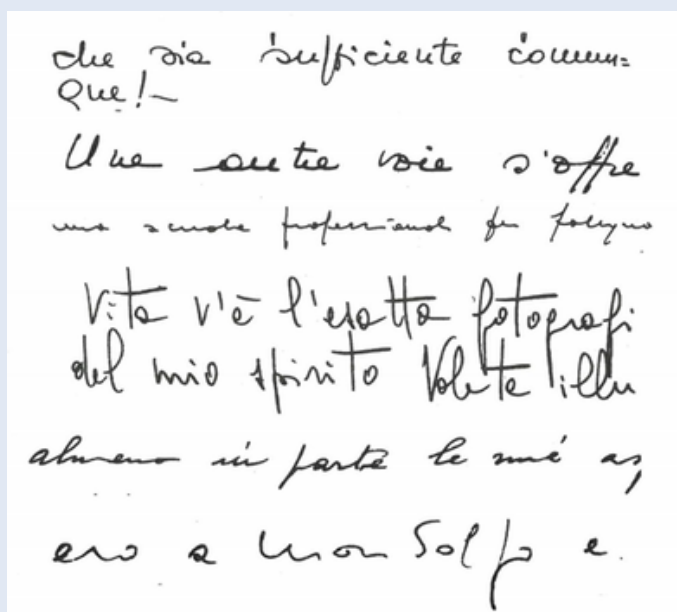 che sia sufficiente comun=
que!-
Une autre voie s'offre
una scuola professionale per
Vita v'è l'esatta fotografi
del mio spirito Volete illu
almeno in parte le mie as
ero a